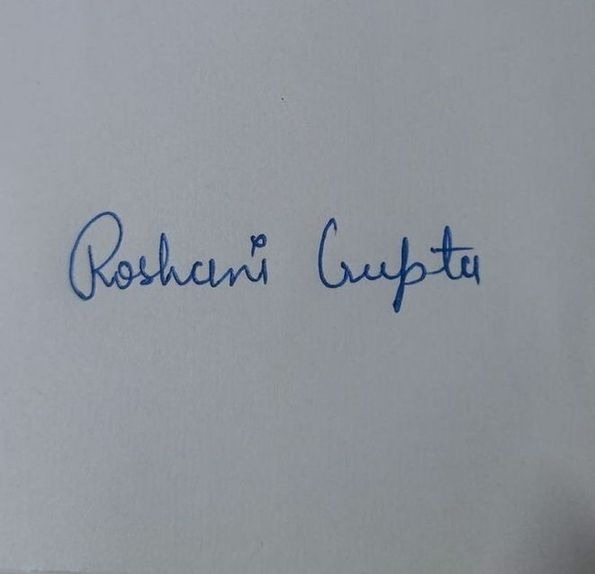 Roshani Gupta